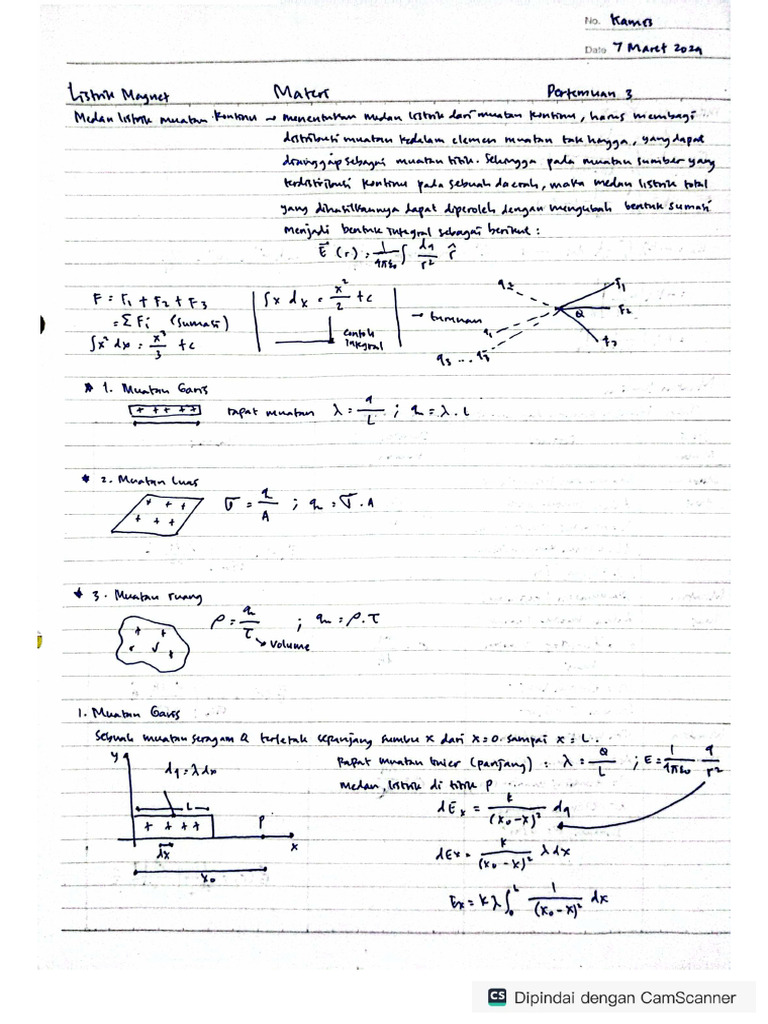 No. Kamis
Date 7 Maret 2024
Listrik Magnet Materi Pertemuan 3
Medan listrik muatan kontinu → menentukan medan listrik dari muatan kontinu, harus membagi
distribusi muatan kedalam elemen muatan tak hingga, yang dapat
dianggap sebagai muatan titik. Sehingga pada muatan sumber yang
terdistribusi kontinu pada sebuah daerah, maka medan listrik total
yang dihasilkannya dapat diperoleh dengan mengubah bentuk sumasi
menjadi bentuk integral sebagai berikut :
E (r) = 1/4πε₀ ∫ dq/r² r̂
F = F₁ + F₂ + F₃
= Σ Fi (sumasi)
∫x² dx = x³/3 + c
∫x dx = x²/2 + c
contoh integral
→ turunan
q₂ F₁
Q F₂
q₁ F₃
q₃ ...
* 1. Muatan Garis
+ + + + +
rapat muatan λ = q/L ; q = λ . L
* 2. Muatan Luas
+ + +
+ + +
σ = q/A ; q = σ . A
* 3. Muatan ruang
ρ = q/τ ; q = ρ . τ
→ volume
1. Muatan Garis
Sebuah muatan seragam Q terletak sepanjang sumbu x dari x = 0 sampai x = L.
Rapat muatan linier (panjang) : λ = Q/L ; E = 1/4πε₀ q/r²
Medan listrik di titik P
y
dq = λ dx
L
+ + + +
P
x
dx
x₀
dEx = k/(x₀-x)² dq
dEx = k/(x₀-x)² λ dx
Ex = kλ ∫₀ᴸ 1/(x₀-x)² dx
CS Dipindai dengan CamScanner